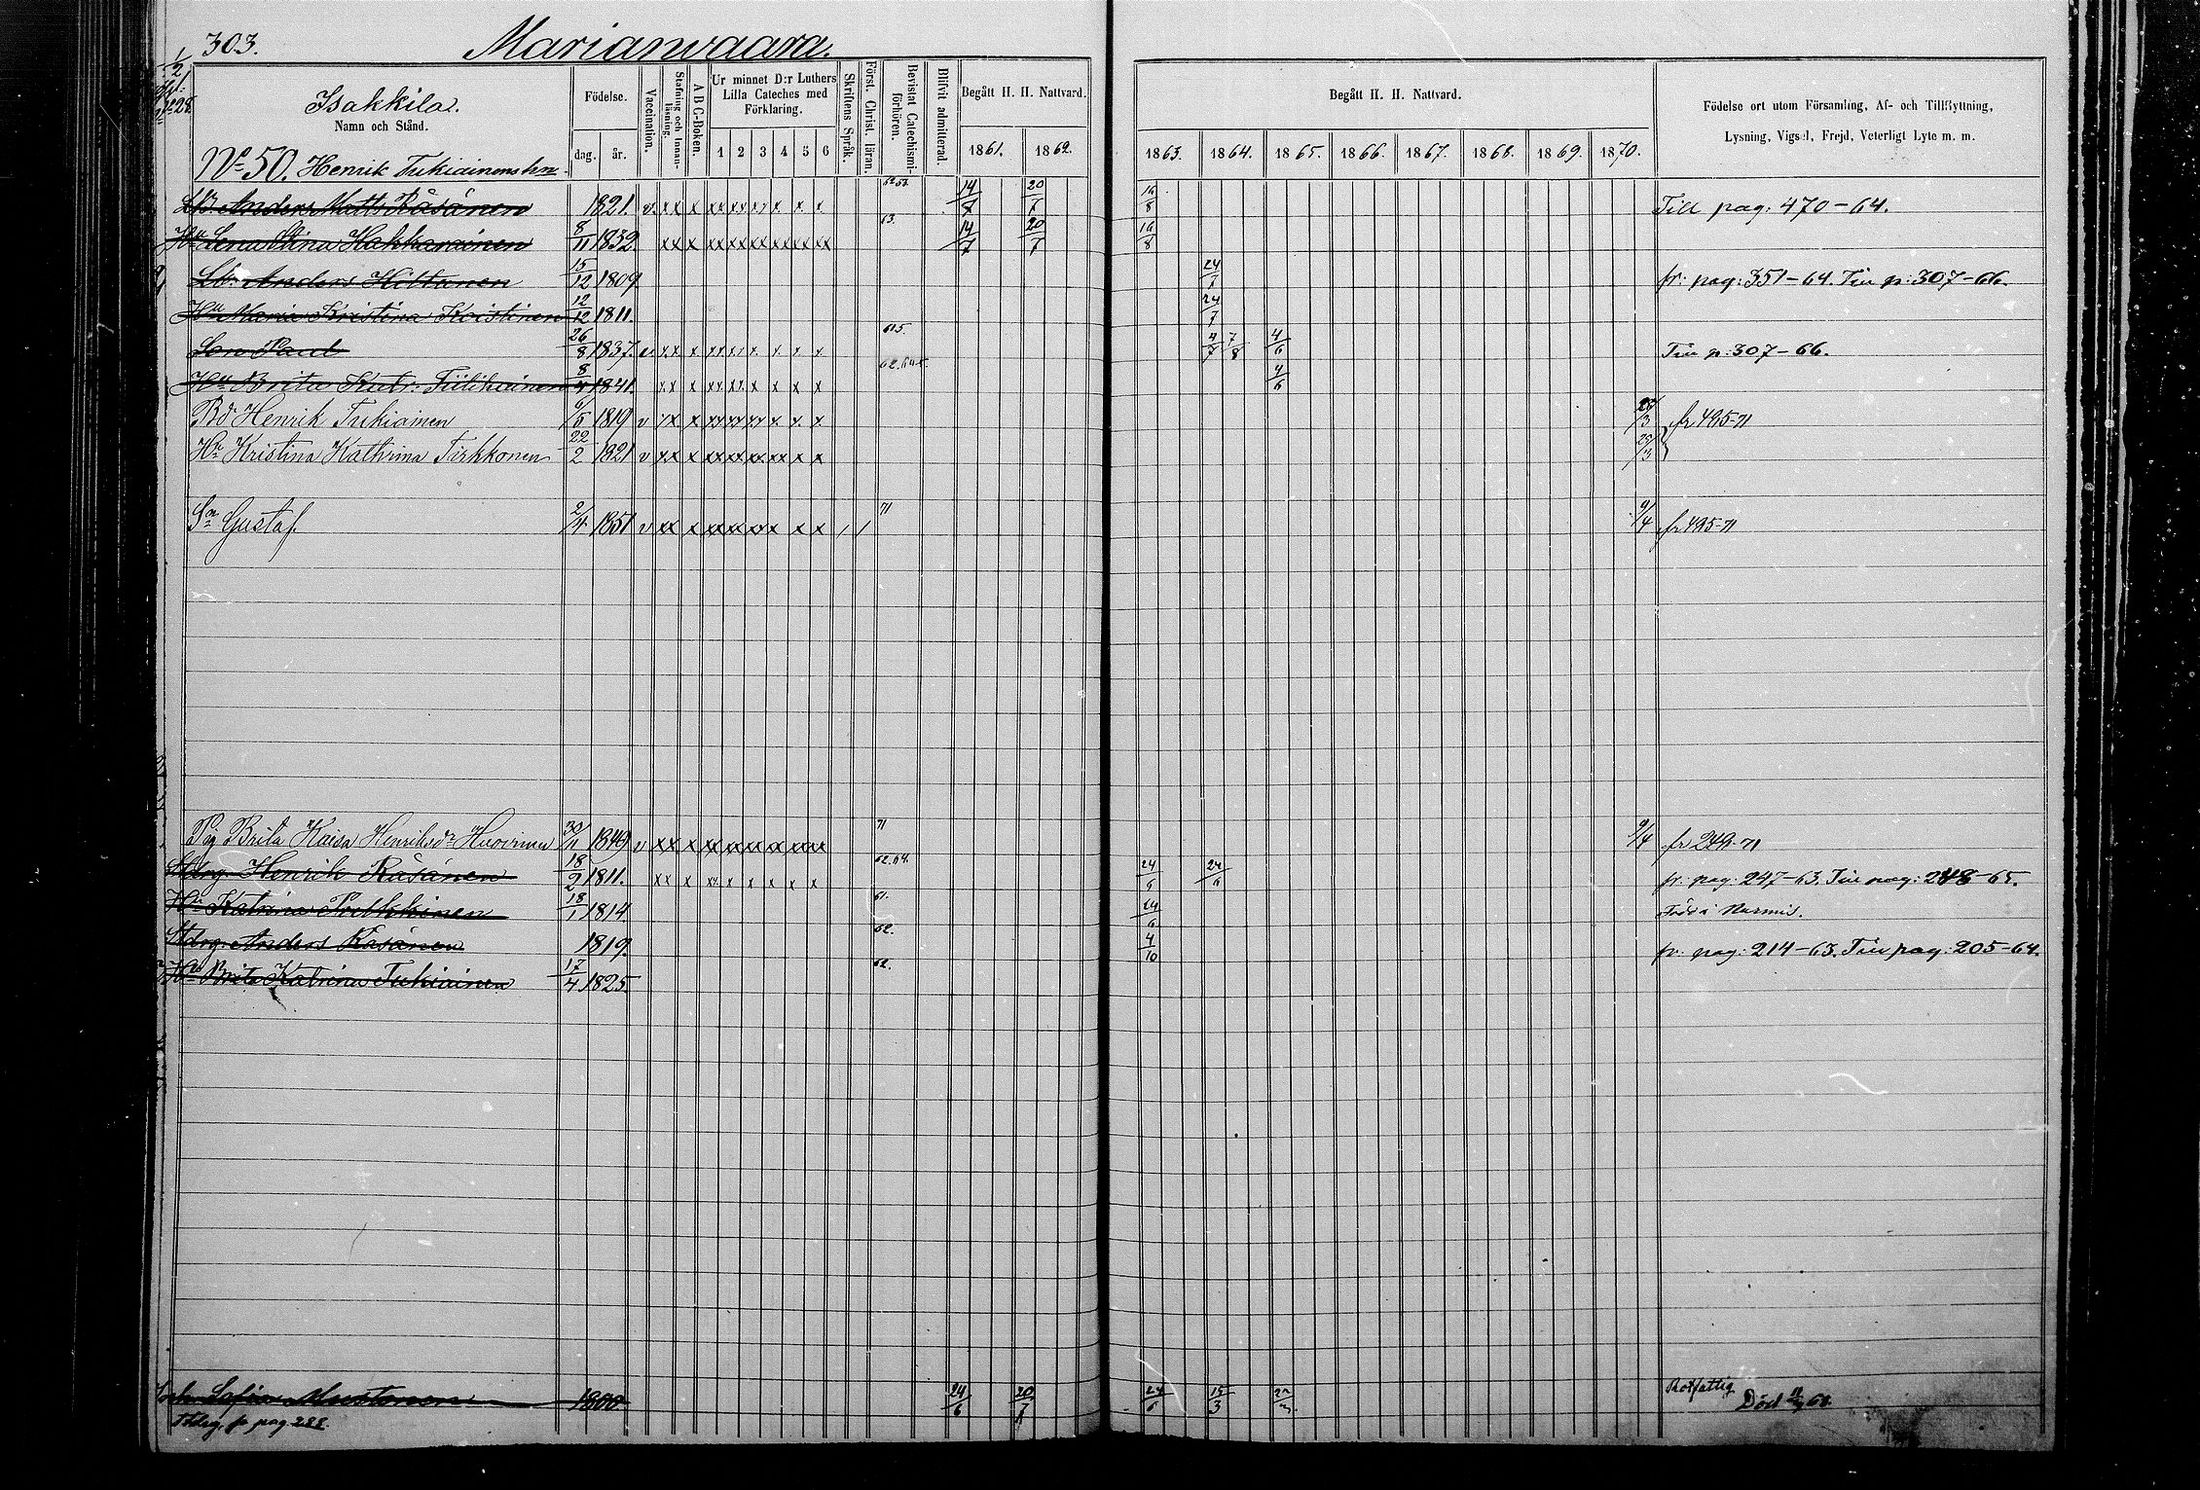 303. Marianvaara.
Isakkila.
Namn och Stånd.
Födelse.
dag. år.
Vaccination.
Stafning och Innanläsning.
A B C-Boken.
Ur minnet D:r Luthers Lilla Cateches med Förklaring.
1 2 3 4 5 6
Skriftens Språk.
Först. Christ. läran.
Bevistat Catechismiförhören.
Blifvit admitterad.
Begått H. H. Nattvard.
1861. 1862.
Begått H. H. Nattvard.
1863. 1864. 1865. 1866. 1867. 1868. 1869. 1870.
Födelse ort utom Församling, Af- och Tillflyttning,
Lysning, Vigsel, Frejd, Veterligt Lyte m. m.
No 50. Henrik Tukiainens hn
Anders Matts Räsänen 1821. v. xx x xx xx xx x x x 14/7 20/7 16/8 Till pag: 470-64.
Hu Lena Stina Hakkarainen 8/11 1832. xx x 63. 14/7 20/7 16/8
Anders Hiltunen 15/12 1809 24/7 fr: pag: 351-64. Till p: 307-66.
Hu Maria Kristina Koistinen 12/12 1811. 24/7
Son Paul 26/8 1837. v xx x 4/7 7/8 4/6 Till p: 307-66.
Hu Brita Katr. Tiilikainen 8/4 1841. xx x 4/6
Bd Henrik Tukiainen 6/5 1819 v xx x 28/3 fr 495-71
Hu Kristina Kathrina Tirkkonen 22/2 1821 v xx x 28/3
Sn Gustaf 2/4 1851 v xx x 71 9/4 fr 495-71
Pig Brita Kaisa Henriksdr Huovinen 30/11 1849 v xx x 71 9/4 fr 249-71
Henrik Räsänen 18/2 1811. xx x 62.64. 24/6 24/6 fr: pag: 247-63. Till pag: 248-65.
Hu Katrina 18/1 1814 61. 24/6 Född i Nurmis.
Anders Räsänen 1819. 62. 4/10 fr. pag: 214-63. Till pag: 205-64.
Hu Brita Katrina Tukiainen 17/4 1825. 62.
Sofia Mustonen 1800 24/6 20/7 24/6 15/3 Rotfattig Död 68.
fr pag. 288.